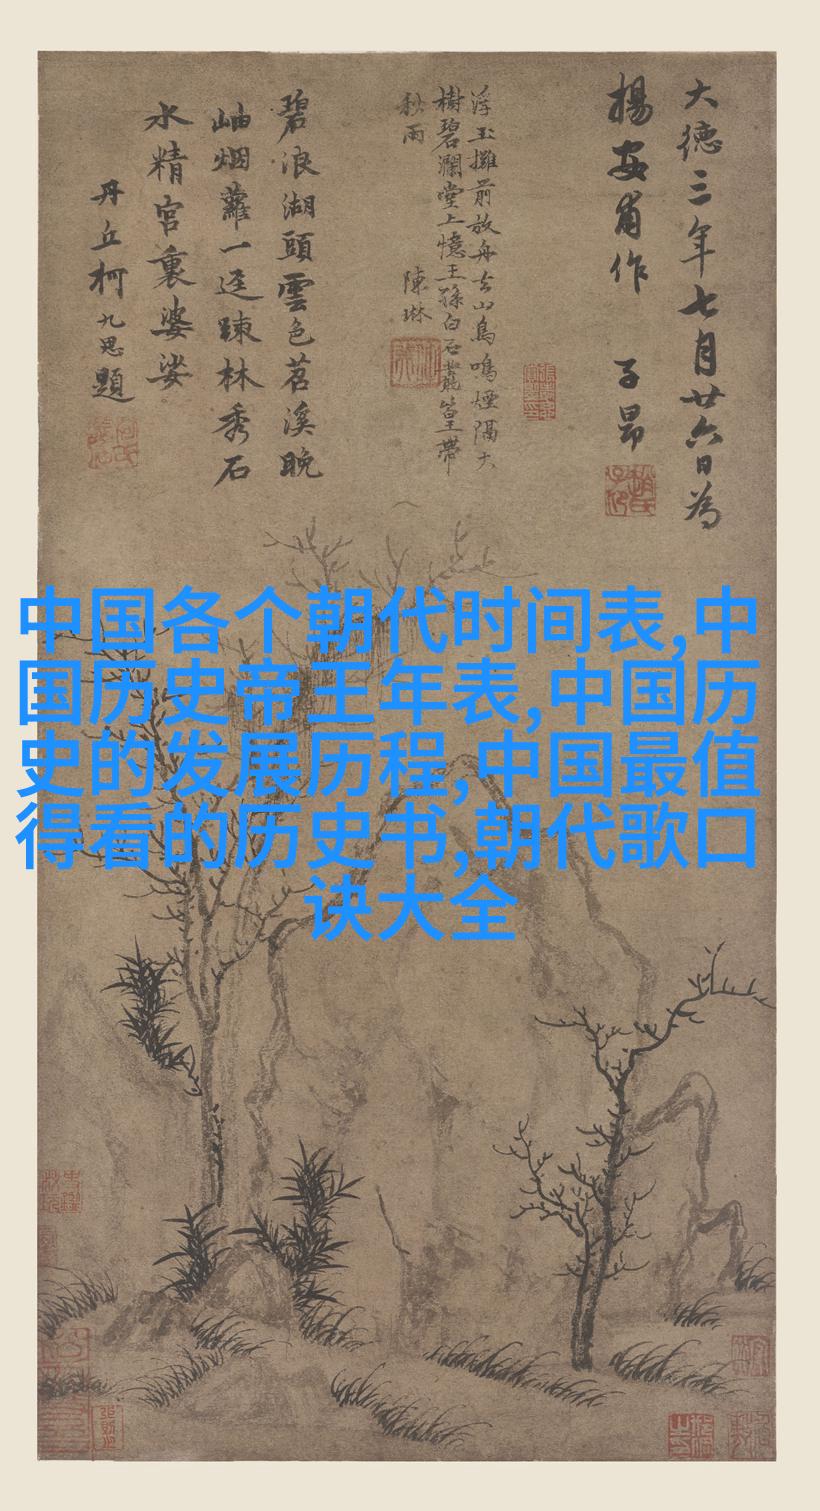 大德三年七月廿六日為
楊安甫作 子昂
浮玉攤前放舟去山鳥鳴煙隔大
樹碧瀾堂上憶王孫白石叢篁帶
秋雨 陳琳
碧浪湖頭雲色苕溪晚
岫烟蘿一逕踈林秀石
水精宮裏婆娑
丹丘柯九思題
中国各个朝代时间表,中
国历史帝王年表,中国历
史的发展历程,中国最值
得看的历史书,朝代歌口
诀大全